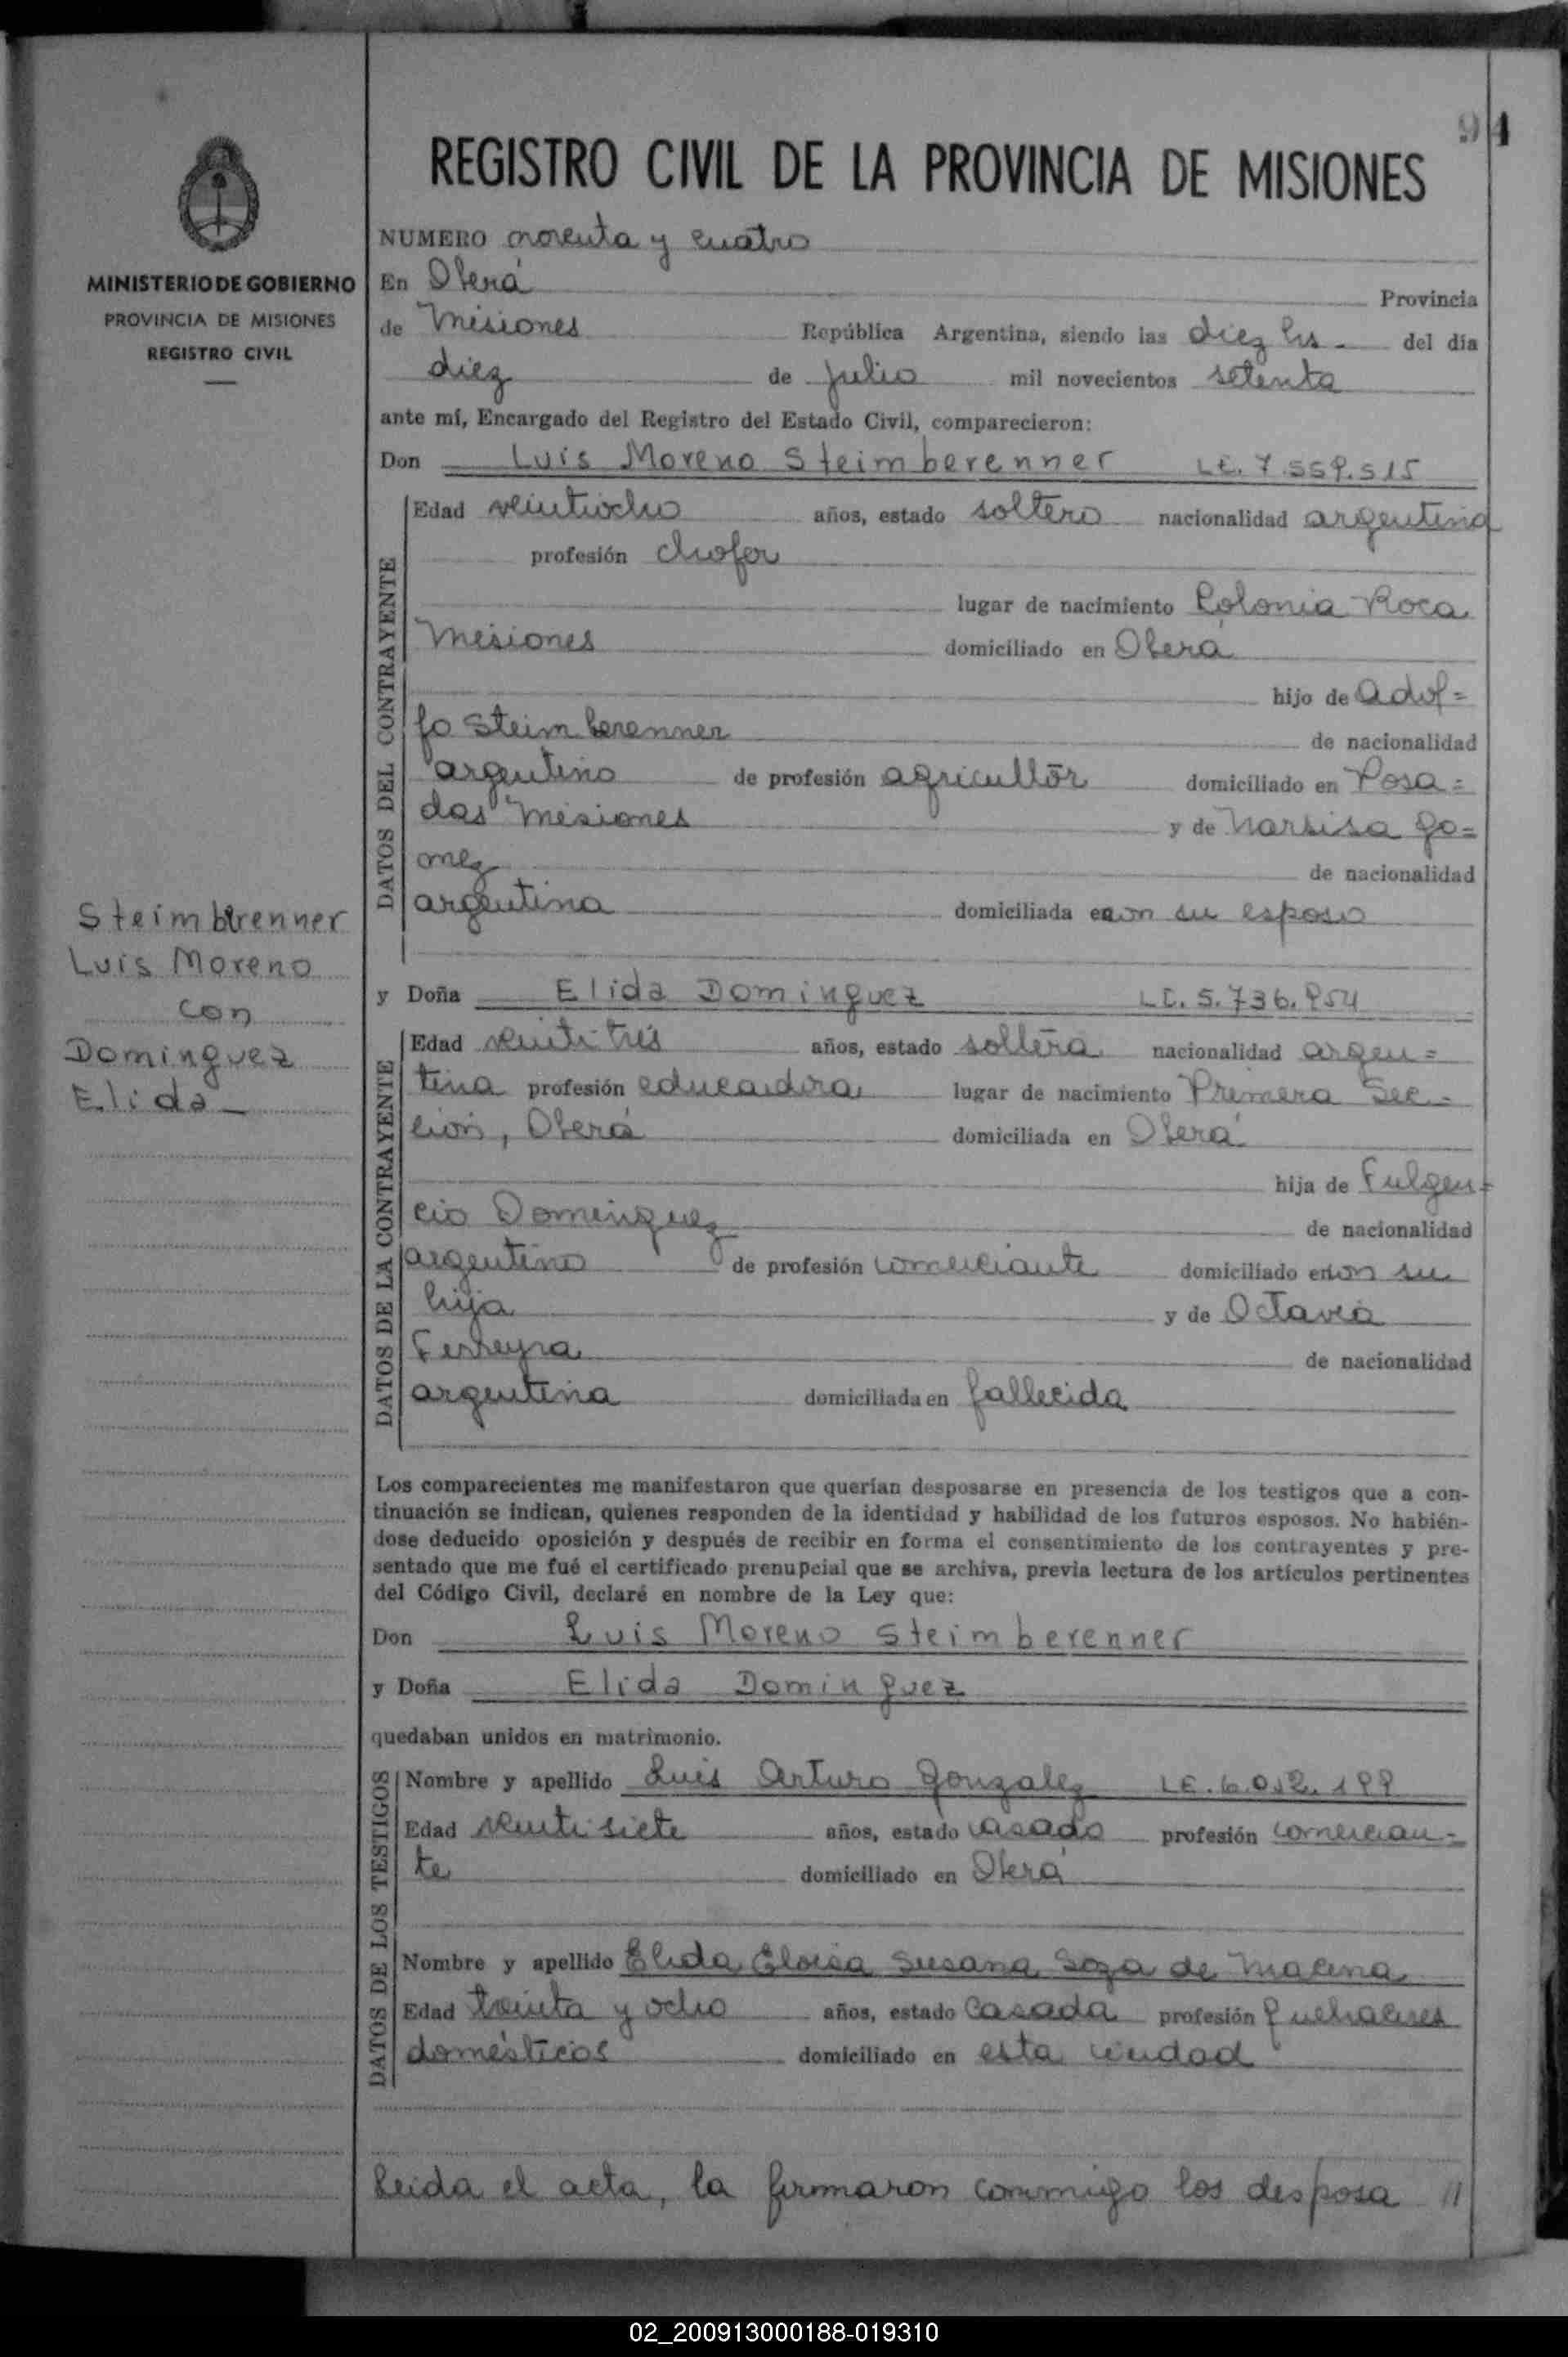 94
REGISTRO CIVIL DE LA PROVINCIA DE MISIONES
MINISTERIO DE GOBIERNO
PROVINCIA DE MISIONES
REGISTRO CIVIL
NUMERO noventa y cuatro
En Oberá Provincia
de Misiones República Argentina, siendo las diez hs - del día
diez de julio mil novecientos setenta
ante mí, Encargado del Registro del Estado Civil, comparecieron:
Don Luis Moreno Steimberenner LE. 7.559.515
DATOS DEL CONTRAYENTE
Edad veintiocho años, estado soltero nacionalidad argentina
profesión chofer
lugar de nacimiento Colonia Roca
Misiones domiciliado en Oberá
hijo de Adol=
fo Steimberenner de nacionalidad
argentino de profesión agricultor domiciliado en Posa=
das Misiones y de Narsisa Go=
mez de nacionalidad
argentina domiciliada en con su esposo
Steimberenner
Luis Moreno
con
Dominguez
Elida-
y Doña Elida Dominguez LC. 5.736.954
DATOS DE LA CONTRAYENTE
Edad veintitrés años, estado soltera nacionalidad argen=
tina profesión educadora lugar de nacimiento Primera Sec-
ción, Oberá domiciliada en Oberá
hija de Fulgen=
cio Dominguez de nacionalidad
argentino de profesión comerciante domiciliado en con su
hija y de Octavia
Ferreyra de nacionalidad
argentina domiciliada en fallecida
Los comparecientes me manifestaron que querían desposarse en presencia de los testigos que a con-
tinuación se indican, quienes responden de la identidad y habilidad de los futuros esposos. No habién-
dose deducido oposición y después de recibir en forma el consentimiento de los contrayentes y pre-
sentado que me fué el certificado prenupcial que se archiva, previa lectura de los artículos pertinentes
del Código Civil, declaré en nombre de la Ley que:
Don Luis Moreno Steimberenner
y Doña Elida Dominguez
quedaban unidos en matrimonio.
DATOS DE LOS TESTIGOS
Nombre y apellido Luis Arturo Gonzalez LE.
Edad veintisiete años, estado casado profesión comercian-
te domiciliado en Oberá
Nombre y apellido Elida Eloisa Susana Soza de
Edad treinta y ocho años, estado casada profesión quehaceres
domésticos domiciliado en esta ciudad
Leida el acta, la firmaron conmigo los desposa //
02_200913000188-019310